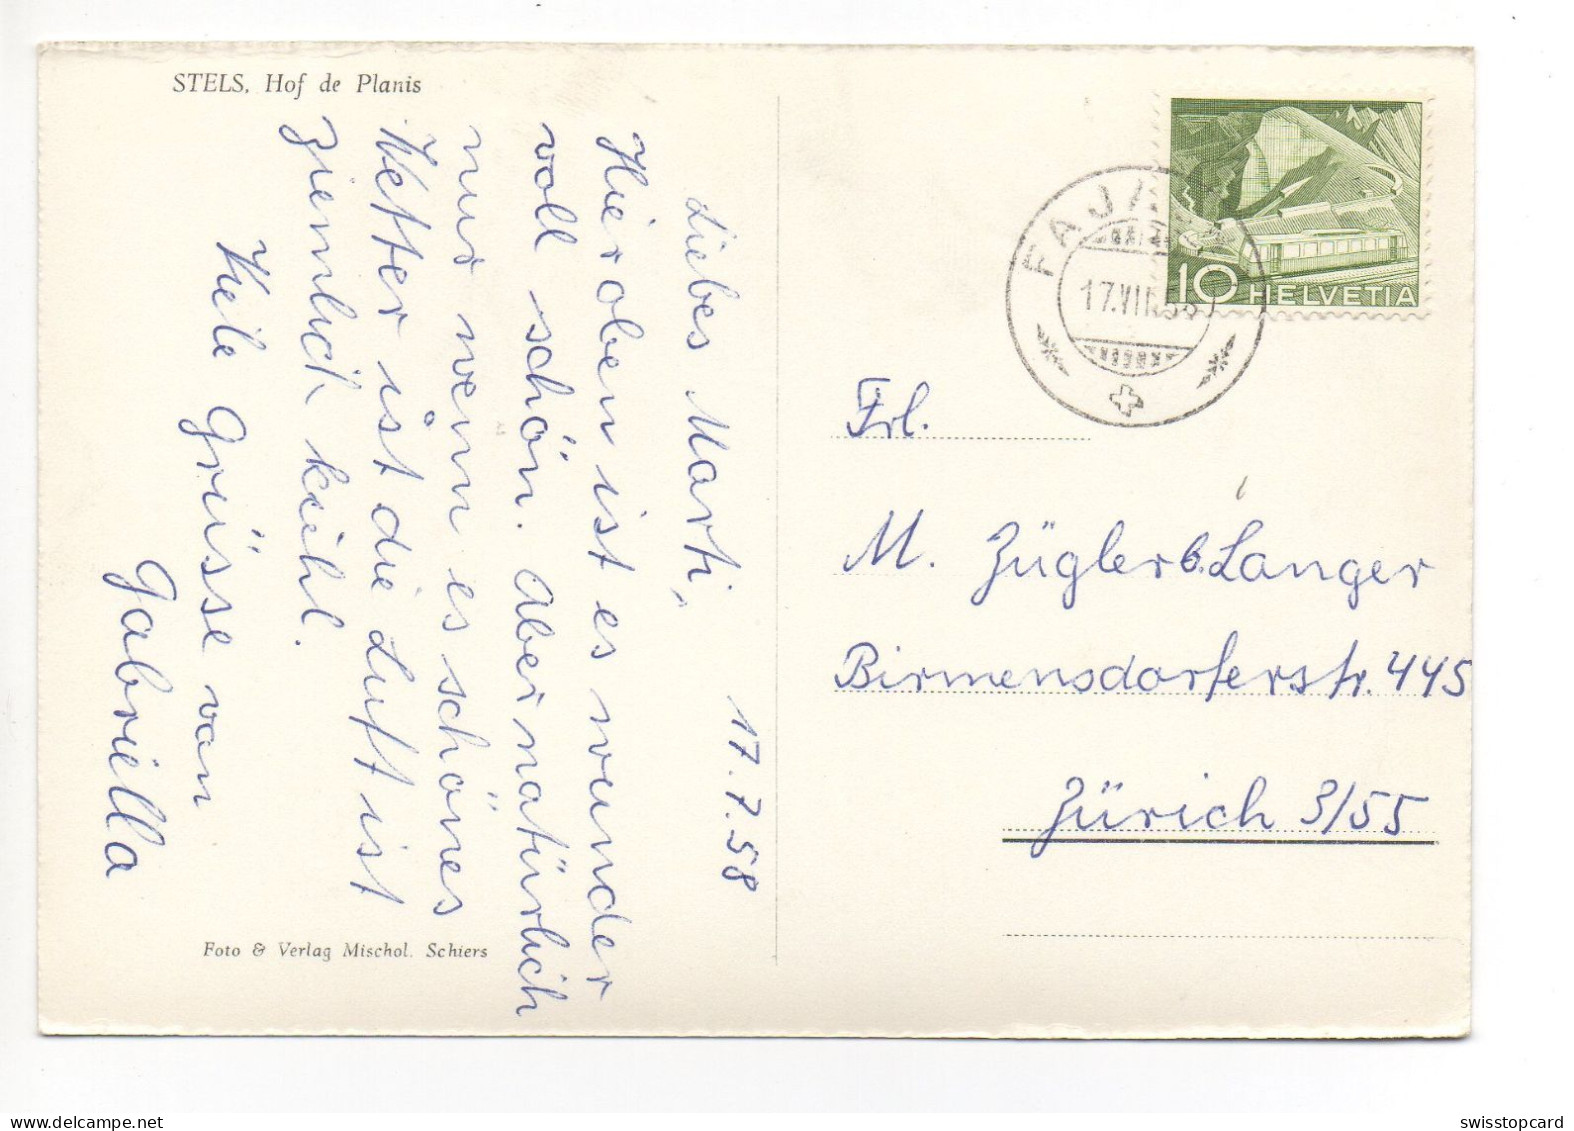 STELS, Hof de Planis
17.7.58
Liebes Marti,
Hier oben ist es wunder
voll schön. Aber natürlich
nur wenn es schönes
Wetter ist die Luft ist
ziemlich kühl.
Viele Grüsse von
Gabriella
Foto & Verlag Mischol. Schiers
17.VII.58
10 HELVETIA
Frl.
M. Zügler b. Langer
Birmensdorferstr. 445
Zürich 3/55
swisstopcard